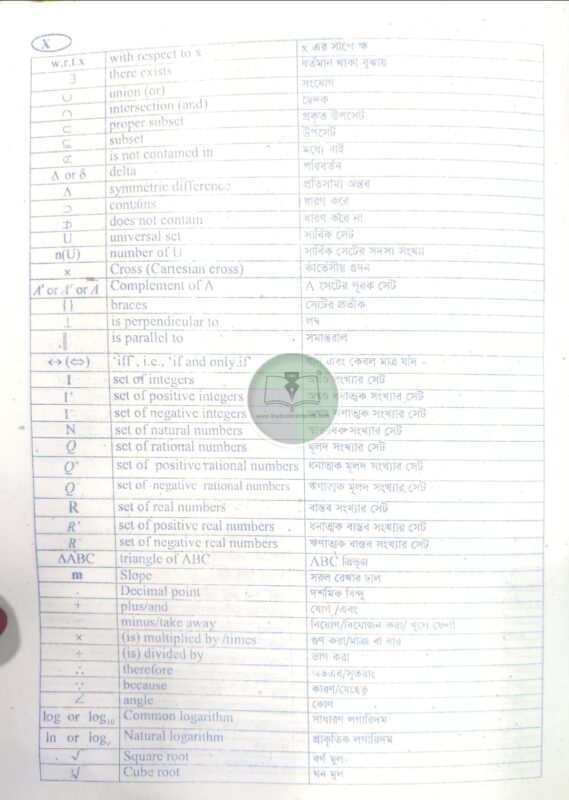 X
w.r.t.x with respect to x x এর সাপেক্ষে
∃ there exists বর্তমান থাকা বুঝায়
∪ union (or) সংযোগ
∩ intersection (and) ছেদক
⊂ proper subset প্রকৃত উপসেট
⊆ subset উপসেট
⊄ is not contained in মধ্যে নাই
Δ or δ delta পরিবর্তন
Δ symmetric difference প্রতিসাম্য অন্তর
⊃ contains ধারণ করে
⊅ does not contain ধারণ করে না
U universal set সার্বিক সেট
n(U) number of U সার্বিক সেটের সদস্য সংখ্যা
× Cross (Cartesian cross) কার্তেসীয় গুণন
A' or Aᶜ or Ā Complement of A A সেটের পূরক সেট
{ } braces সেটের প্রতীক
⊥ is perpendicular to লম্ব
∥ is parallel to সমান্তরাল
↔ (⇔) 'iff', i.e., 'if and only if' যদি এবং কেবল মাত্র যদি
I set of integers অখণ্ড সংখ্যার সেট
I⁺ set of positive integers অখণ্ড ধনাত্মক সংখ্যার সেট
I⁻ set of negative integers অখণ্ড ঋণাত্মক সংখ্যার সেট
N set of natural numbers স্বাভাবিক সংখ্যার সেট
Q set of rational numbers মূলদ সংখ্যার সেট
Q⁺ set of positive rational numbers ধনাত্মক মূলদ সংখ্যার সেট
Q⁻ set of negative rational numbers ঋণাত্মক মূলদ সংখ্যার সেট
R set of real numbers বাস্তব সংখ্যার সেট
R⁺ set of positive real numbers ধনাত্মক বাস্তব সংখ্যার সেট
R⁻ set of negative real numbers ঋণাত্মক বাস্তব সংখ্যার সেট
ΔABC triangle of ABC ΔABC ত্রিভূজ
m Slope সরল রেখার ঢাল
. Decimal point দশমিক বিন্দু
+ plus/and যোগ /এবং
minus/take away বিয়োগ/বিয়োজন করা/ খুলে ফেলা
× (is) multiplied by /times গুণ করা/মাত্রা বা বার
÷ (is) divided by ভাগ করা
∴ therefore অতএব/সুতরাং
∵ because কারণ/যেহেতু
∠ angle কোণ
log or log₁₀ Common logarithm সাধারণ লগারিদম
ln or logₑ Natural logarithm প্রাকৃতিক লগারিদম
√ Square root বর্গ মূল
∛ Cube root ঘন মূল